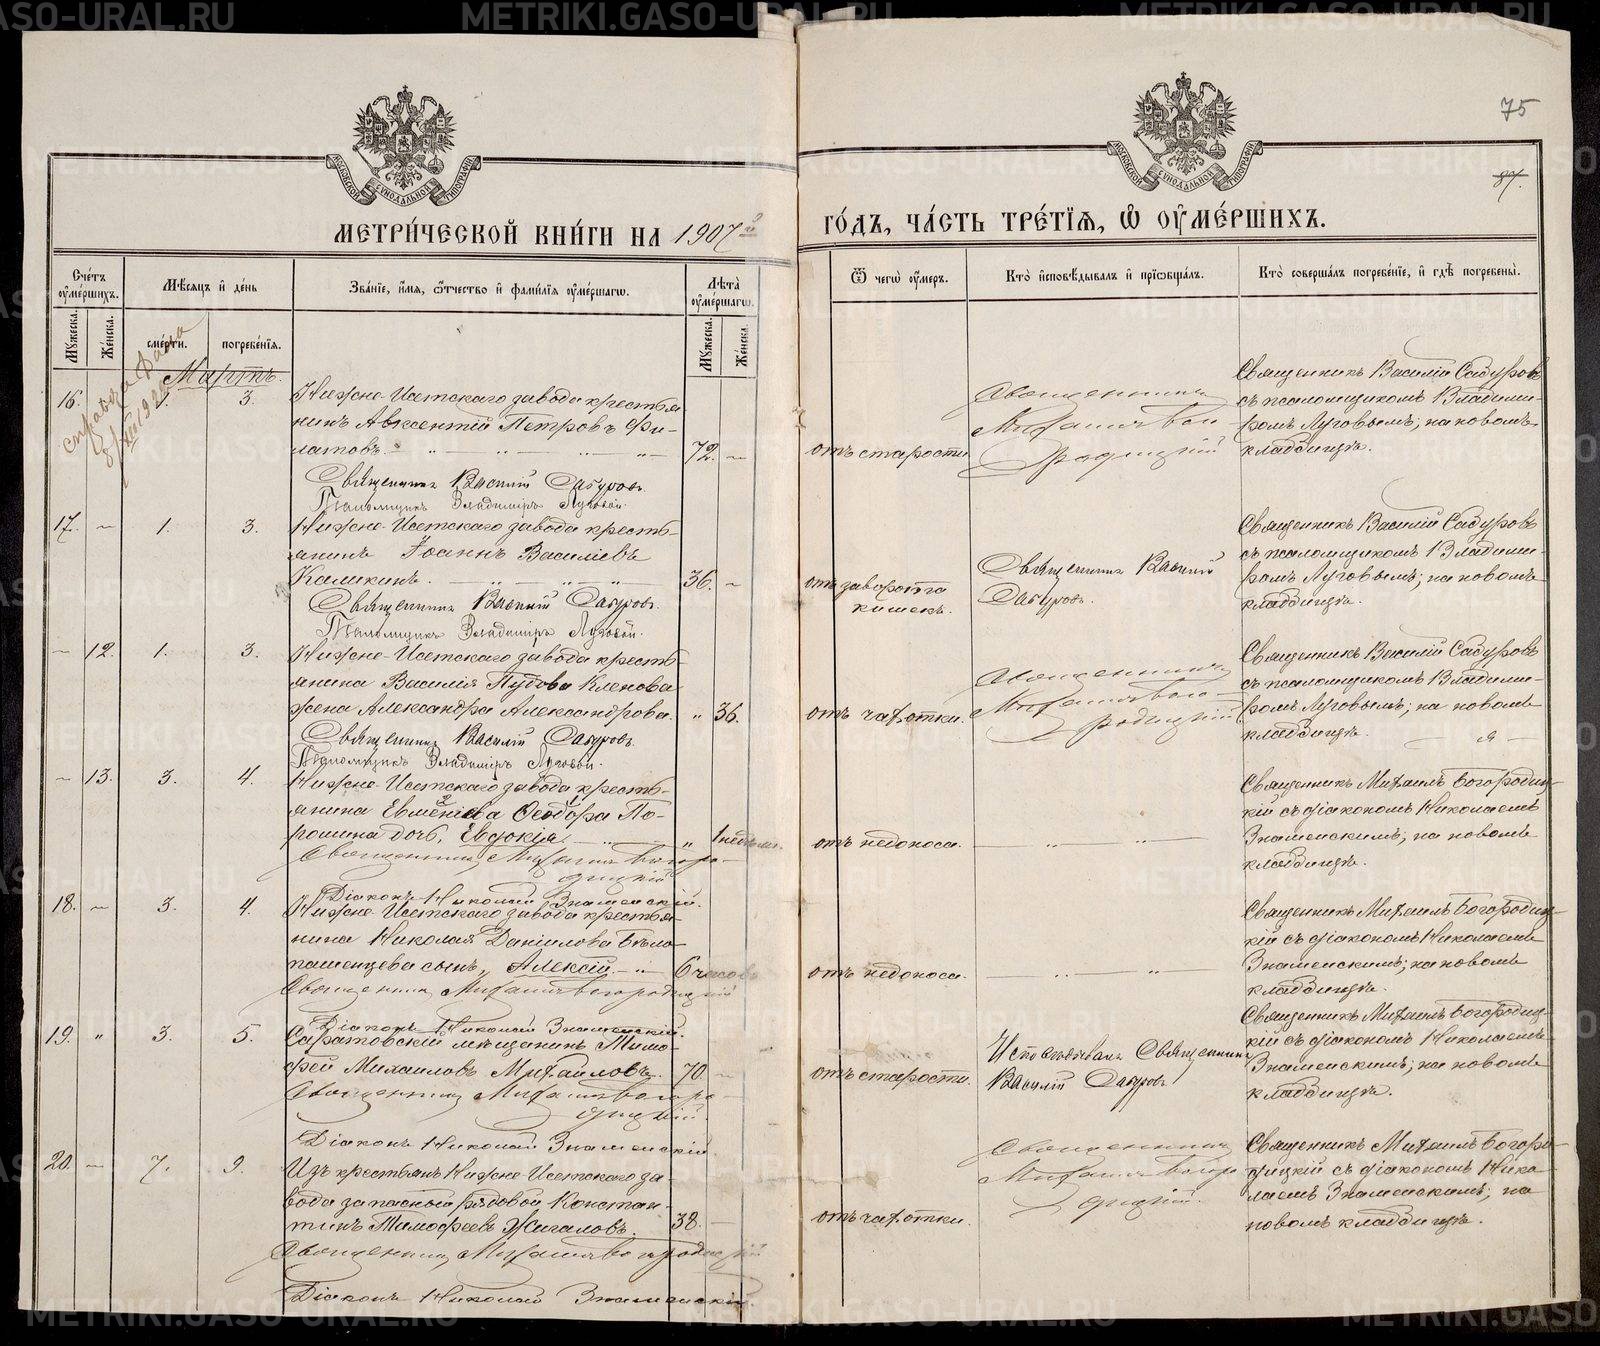 МЕТРИЧЕСКОЙ КНИГИ НА 1907й
ГОДЪ, ЧАСТЬ ТРЕТІЯ, Ѽ ОУМЕРШИХЪ.
75
87.
МОСКОВСКОЙ СѴНОДАЛЬНОЙ ТИПОГРАФІИ
МОСКОВСКОЙ СѴНОДАЛЬНОЙ ТИПОГРАФІИ
Счетъ оумершихъ.
Мѣсяцъ и день
Званіе, имя, отчество и фамилія оумершагѡ.
Лѣта оумершагѡ.
Ѿ чегѡ оумеръ.
Кто исповѣдывалъ и пріѡбщалъ.
Кто совершалъ погребеніе, и гдѣ погребены.
Мужеска.
Женска.
смерти.
погребенія.
Мужеска.
Женска.
Мартъ.
справка дана
16. 1. 3.
Нижне-Исетскаго завода крестья
нинъ Авксентій Петровъ Фи-
латовъ. 72. —
Священникъ Василій Сабуровъ.
Псаломщикъ Владиміръ Луговой.
отъ старости
Священникъ
Михаилъ Бого
родицкій
Священникъ Василій Сабуровъ
съ псаломщикомъ Владими-
ромъ Луговымъ; на новомъ
кладбищѣ.
17. — 1. 3.
Нижне-Исетскаго завода кресть-
янинъ Іоаннъ Василіевъ
Калкинъ. 36. —
Священникъ Василій Сабуровъ.
Псаломщикъ Владиміръ Луговой.
отъ заворота
кишекъ.
Священникъ Василій
Сабуровъ.
Священникъ Василій Сабуровъ
съ псаломщикомъ Владими-
ромъ Луговымъ; на новомъ
кладбищѣ.
— 12. 1. 3.
Нижне-Исетскаго завода кресть-
янина Василія Пудова Кленова
жена Александра Александрова. " 36.
Священникъ Василій Сабуровъ.
Псаломщикъ Владиміръ Луговой.
отъ чахотки.
Священникъ
Михаилъ Бого-
родицкій
Священникъ Василій Сабуровъ
съ псаломщикомъ Владими-
ромъ Луговымъ; на новомъ
кладбищѣ.
— 13. 3. 4.
Нижне-Исетскаго завода кресть-
янина Евменіева Ѳеодора По-
рошина дочь, Евдокія. " 1 недѣли.
Священникъ Михаилъ Богоро-
дицкій
Діаконъ Николай Знаменскій.
отъ недоноса.
Священникъ Михаилъ Богородиц-
кій съ діакономъ Николаемъ
Знаменскимъ; на новомъ
кладбищѣ.
18. — 3. 4.
Нижне-Исетскаго завода крестья-
нина Николая Даніилова Бѣло-
пашенцева сынъ, Алексій. 6 часовъ
Священникъ Михаилъ Богородицкій
Діаконъ Николай Знаменскій.
отъ недоноса.
Священникъ Михаилъ Богородиц-
кій съ діакономъ Николаемъ
Знаменскимъ; на новомъ
кладбищѣ.
19. " 3. 5.
Саратовскій мѣщанинъ Тимо-
фей Михаиловъ Михайловъ. 70 —
Священникъ Михаилъ Богоро-
дицкій.
Діаконъ Николай Знаменскій.
отъ старости.
Исповѣдывалъ Священникъ
Василій Сабуровъ
Священникъ Михаилъ Богородиц-
кій съ діакономъ Николаемъ
Знаменскимъ; на новомъ
кладбищѣ.
20. — 7. 9.
Изъ крестьянъ Нижне-Исетскаго за-
вода запасный рядовой Констан-
тинъ Тимофеевъ Жигаловъ. 38. —
Священникъ Михаилъ Богородицкій
Діаконъ Николай Знаменскій.
отъ чахотки.
Священникъ
Михаилъ Богор
одицкій.
Священникъ Михаилъ Богоро-
дицкій съ діакономъ Нико-
лаемъ Знаменскимъ; на
новомъ кладбищѣ.
METRIKI.GASO-URAL.RU